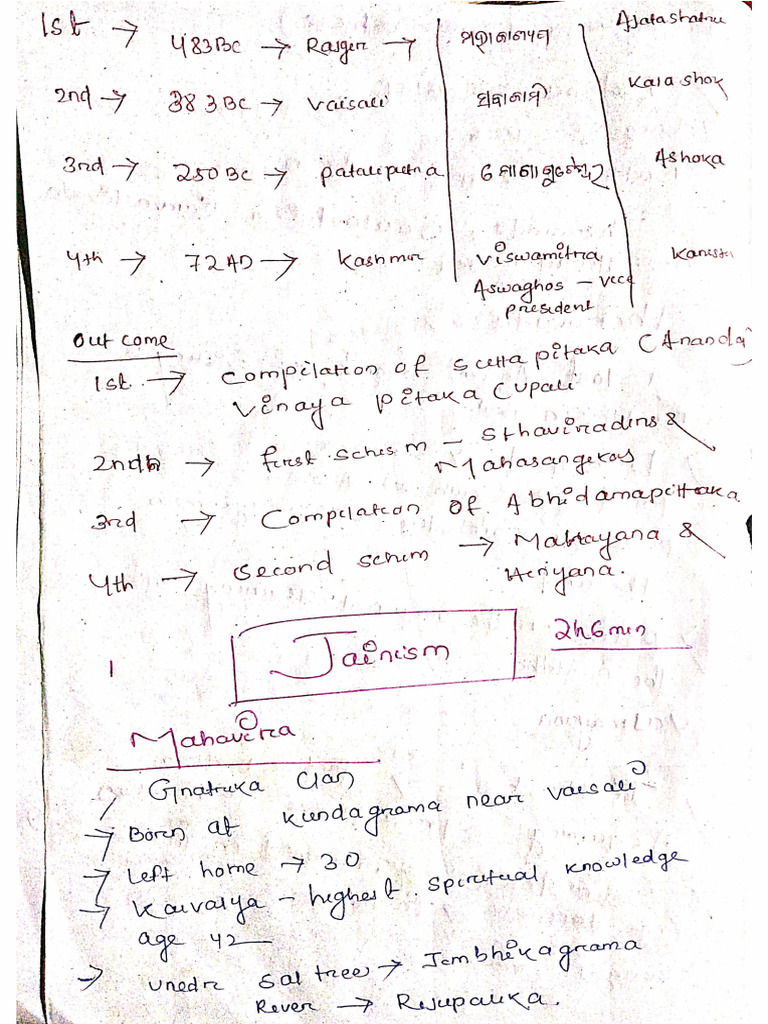 1st → 483BC → Rajger → ମହାକାଶ୍ୟପ Ajatashatru
2nd → 383BC → Vaisali ସବାକାମୀ Kalashok
3rd → 250BC → pataliputra Ashoka
4th → 72AD → Kashmir Viswamitra
Aswaghos - vice president
Out come
1st → Compilation of Sutta pitaka (Ananda)
Vinaya pitaka (upali
2nd → first schism - Sthaviradins &
Mahasangikas
3rd → Compilation of Abhidamapittaka
4th → Second schim → Mahayana &
Heniyana.
1 Jainism 2h6min
Mahavira
Gnatruka Clan
→ Born at Kundagrama near vaisali
→ Left home → 30
→ Kaivalya - highest spiritual knowledge
age 42
→ Unedr Sal tree → Jembhikagrama
River → Rijupalika.